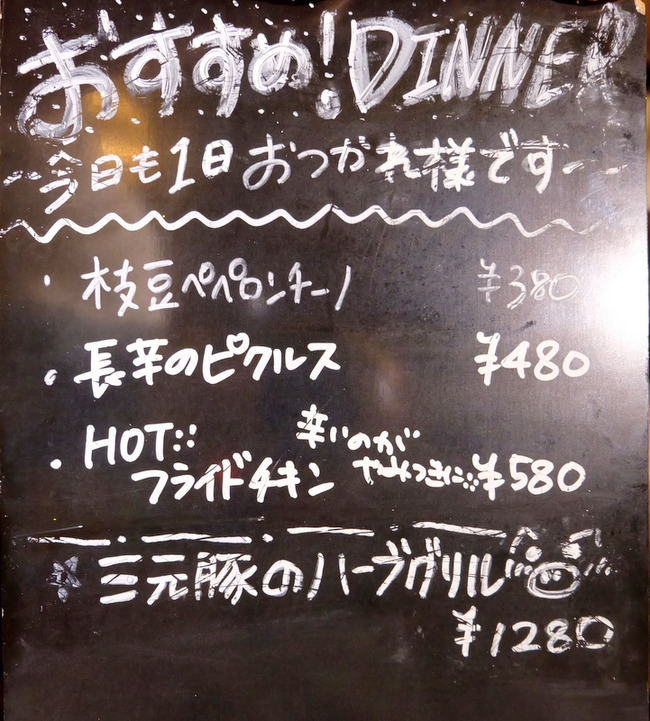 おすすめ!DINNER
今日も1日おつかれ様です
・枝豆ペペロンチーノ ¥380
・長芋のピクルス ¥480
・HOT::
辛いのが
フライドチキン やみつきに:: ¥580
☆三元豚のハーブグリル
¥1280